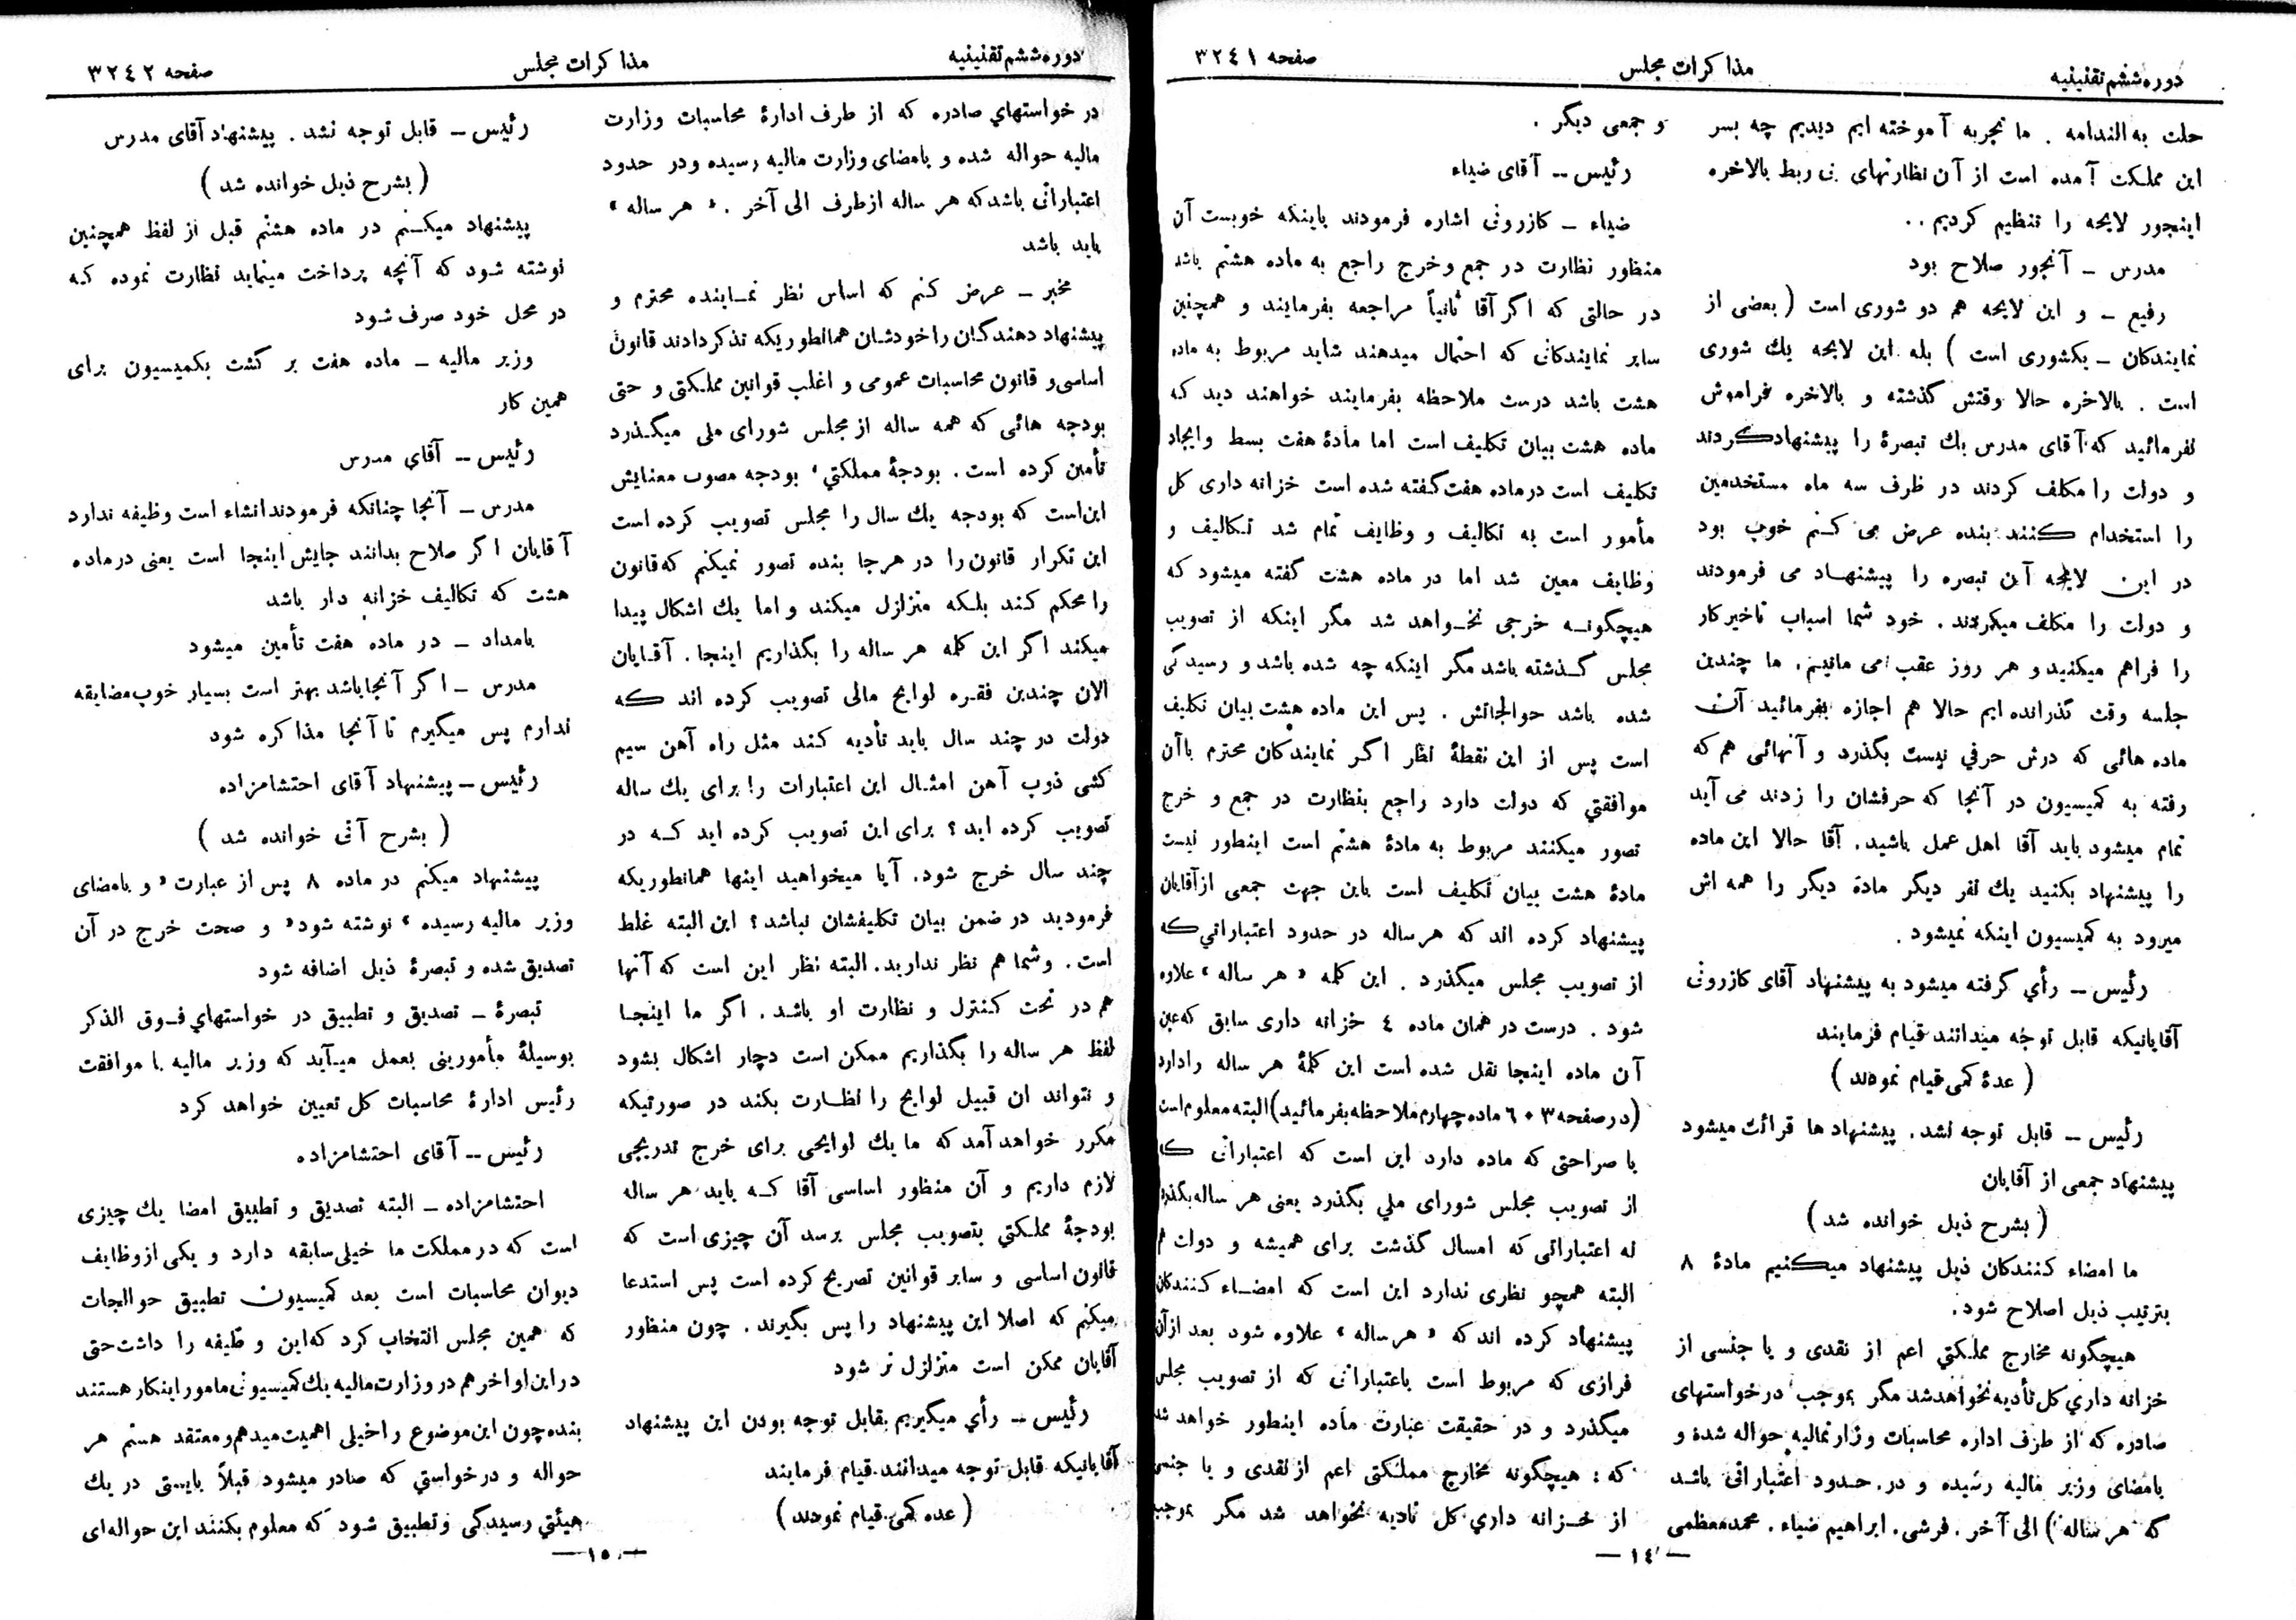 دوره ششم تقنینیه
مذاکرات مجلس
صفحه ۳۲٤۱
حلت به الندامه . ما تجربه آموخته ایم دیدیم چه بسر
این مملکت آمده است از آن نظارتهای بی ربط بالاخره
اینجور لایحه را تنظیم کردیم . .
مدرس ـ آنجور صلاح بود
رفیع ـ و این لایحه هم دو شوری است ( بعضی از
نمایندگان ـ یکشوری است ) بله این لایحه یك شوری
است . بالاخره حالا وقتش گذشته و بالاخره فراموش
نفرمائید که آقای مدرس یك تبصرۀ را پیشنهاد کردند
و دولت را مکلف کردند در ظرف سه ماه مستخدمین
را استخدام کنند بنده عرض می کنم خوب بود
در این لایحه آن تبصره را پیشنهاد می فرمودند
و دولت را مکلف میکردند . خود شما اسباب تاخیر کار
را فراهم میکنید و هر روز عقب می مانیم . ما چندین
جلسه وقت گذرانده ایم حالا هم اجازه بفرمائید آن
ماده هائی که درش حرفي نیست بگذرد و آنهائی هم که
رفته به کمیسیون در آنجا که حرفشان را زدند می آید
تمام میشود باید آقا اهل عمل باشید . آقا حالا این ماده
را پیشنهاد بکنید یك نفر دیگر مادۀ دیگر را همه اش
میرود به کمیسیون اینکه نمیشود .
رئیس ـ رأي گرفته میشود به پیشنهاد آقای کازرونی
آقایانیکه قابل توجه میدانند قیام فرمایند
( عدۀ کمی قیام نمودند )
رئیس ـ قابل توجه نشد . پیشنهاد ها قرائت میشود
پیشنهاد جمعی از آقایان
( بشرح ذیل خوانده شد )
ما امضاء کنندگان ذیل پیشنهاد میکنیم مادۀ ۸
بترتیب ذیل اصلاح شود .
هیچگونه مخارج مملکتي اعم از نقدی و یا جنسی از
خزانه داري کل تأدیه نخواهد شد مگر بموجب درخواستهای
صادره که از طرف اداره محاسبات وزارتمالیه حواله شده و
بامضای وزیر مالیه رسیده و در حدود اعتباراتی باشد
که هر ساله ) الی آخر . فرشی . ابراهیم ضیاء . محمد معظمی
و جمعی دیگر .
رئیس ــ آقای ضیاء
ضیاء ـ کازرونی اشاره فرمودند باینکه خوبست آن
منظور نظارت در جمع و خرج راجع به ماده هشتم باشد
در حالتی که اگر آقا ثانیاً مراجعه بفرمایند و همچنین
سایر نمایندگانی که احتمال میدهند شاید مربوط به ماده
هشت باشد درست ملاحظه بفرمایند خواهند دید که
ماده هشت بیان تکلیف است اما مادۀ هفت بسط و ایجاد
تکلیف است در ماده هفت گفته شده است خزانه داری کل
مأمور است به تکالیف و وظایف تمام شد تکالیف و
وظایف معین شد اما در ماده هشت گفته میشود که
هیچگونه خرجی نخواهد شد مگر اینکه از تصویب
مجلس گذشته باشد مگر اینکه چه شده باشد و رسیدگی
شده باشد حوالجاتش . پس این ماده هشت بیان تکلیف
است پس از این نقطۀ نظر اگر نمایندگان محترم باآن
موافقتي که دولت دارد راجع بنظارت در جمع و خرج
تصور میکنند مربوط به مادۀ هشتم است اینطور نیست
مادۀ هشت بیان تکلیف است باین جهت جمعی از آقایان
پیشنهاد کرده اند که هر ساله در حدود اعتباراتي که
از تصویب مجلس میگذرد . این کلمه « هر ساله » علاوه
شود . درست در همان ماده ٤ خزانه داری سابق که عین
آن ماده اینجا نقل شده است این کلمۀ هر ساله را دارد
(در صفحه ٦۰۳ ماده چهارم ملاحظه بفرمائید) البته معلوم است
با صراحتی که ماده دارد این است که اعتباراتی
از تصویب مجلس شورای ملي بگذرد یعنی هر ساله بگذرد
نه اعتباراتی که امسال گذشت برای همیشه و دولت
البته همچو نظری ندارد این است که امضاء کنندگان
پیشنهاد کرده اند که « هر ساله » علاوه شود بعد از آن
فرازی که مربوط است باعتباراتی که از تصویب مجلس
میگذرد و در حقیقت عبارت ماده اینطور خواهد شد
که : هیچگونه مخارج مملکتی اعم از نقدی و یا جنسی
از خزانه داري کل تادیه نخواهد شد مگر بموجب
— ١٤ —
دوره ششم تقنینیه
مذاکرات مجلس
صفحه ۳۲٤۲
در خواستهاي صادره که از طرف ادارۀ محاسبات وزارت
مالیه حواله شده و بامضای وزارت مالیه رسیده ودر حدود
اعتباراتی باشد که هر ساله از طرف الی آخر . « هر ساله »
باید باشد
مخبر ـ عرض کنم که اساس نظر نماینده محترم و
پیشنهاد دهندگان را خودشان همانطوریکه تذکر دادند قانون
اساسی و قانون محاسبات عمومی و اغلب قوانین مملکتی و حتی
بودجه هائی که همه ساله از مجلس شورای ملی میگذرد
تأمین کرده است . بودجۀ مملکتي ، بودجه مصوب معنایش
این است که بودجه یك سال را مجلس تصویب کرده است
این تکرار قانون را در هر جا بنده تصور نمیکنم که قانون
را محکم کند بلکه متزلزل میکند و اما یك اشکال پیدا
میکند اگر این کلمه هر ساله را بگذاریم اینجا . آقایان
الان چندین فقره لوایح مالی تصویب کرده اند که
دولت در چند سال باید تأدیه کند مثل راه آهن سیم
کشی ذوب آهن امثال این اعتبارات را برای یك ساله
تصویب کرده اید ؟ برای این تصویب کرده اید که در
چند سال خرج شود . آیا میخواهید اینها همانطوریکه
فرمودید در ضمن بیان تکلیفشان نباشد ؟ این البته غلط
است . و شما هم نظر ندارید . البته نظر این است که آنها
هم در تحت کنترل و نظارت او باشد . اگر ما اینجا
لفظ هر ساله را بگذاریم ممکن است دچار اشکال بشود
و نتواند ان قبیل لوایح را نظارت بکند در صورتیکه
مکرر خواهد آمد که ما یك لوایحی برای خرج تدریجی
لازم داریم و آن منظور اساسی آقا که باید هر ساله
بودجۀ مملکتي بتصویب مجلس برسد آن چیزی است که
قانون اساسی و سایر قوانین تصریح کرده است پس استدعا
میکنم که اصلا این پیشنهاد را پس بگیرند . چون منظور
آقایان ممکن است متزلزل تر شود
رئیس ــ رأي میگیریم بقابل توجه بودن این پیشنهاد
آقایانیکه قابل توجه میدانند قیام فرمایند
( عده کمی قیام نمودند )
رئیس ــ قابل توجه نشد . پیشنهاد آقای مدرس
( بشرح ذیل خوانده شد )
پیشنهاد میکنم در ماده هشتم قبل از لفظ همچنین
نوشته شود که آنچه پرداخت مینماید نظارت نموده که
در محل خود صرف شود
وزیر مالیه ـ ماده هفت بر گشت بکمیسیون برای
همین کار
رئیس ــ آقاي مدرس
مدرس ـ آنجا چنانکه فرمودند انشاء است وظیفه ندارد
آقایان اگر صلاح بدانند جایش اینجا است یعنی در ماده
هشت که تکالیف خزانه دار باشد
بامداد ـ در ماده هفت تأمین میشود
مدرس ـ اگر آنجا باشد بهتر است بسیار خوب مضایقه
ندارم پس میگیرم تا آنجا مذاکره شود
رئیس ـ پیشنهاد آقای احتشامزاده
( بشرح آتی خوانده شد )
پیشنهاد میکنم در ماده ۸ پس از عبارت « و بامضای
وزیر مالیه رسیده » نوشته شود « و صحت خرج در آن
تصدیق شده و تبصرۀ ذیل اضافه شود
تبصرۀ ـ تصدیق و تطبیق در خواستهاي فوق الذکر
بوسیلۀ مأمورینی بعمل میآید که وزیر مالیه با موافقت
رئیس ادارۀ محاسبات کل تعیین خواهد کرد
رئیس ــ آقای احتشامزاده
احتشامزاده ـ البته تصدیق و تطبیق امضا یك چیزی
است که در مملکت ما خیلی سابقه دارد و یکی از وظایف
دیوان محاسبات است بعد کمیسیون تطبیق حوالجات
که همین مجلس انتخاب کرد که این وظیفه را داشت حتی
در این اواخر هم در وزارت مالیه یك کمیسیونی مامور اینکار هستند
بنده چون این موضوع را خیلی اهمیت میدهم و معتقد هستم هر
حواله و در خواستي که صادر میشود قبلاً بایستی در یك
هیئتي رسیدگی و تطبیق شود که معلوم بکنند این حواله ای
— ۱٥ —